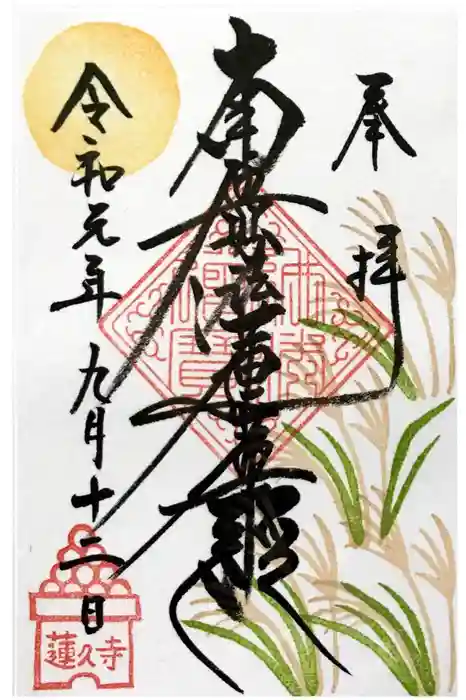 奉拝
南無妙法蓮華経
令和元年九月十二日
蓮久寺